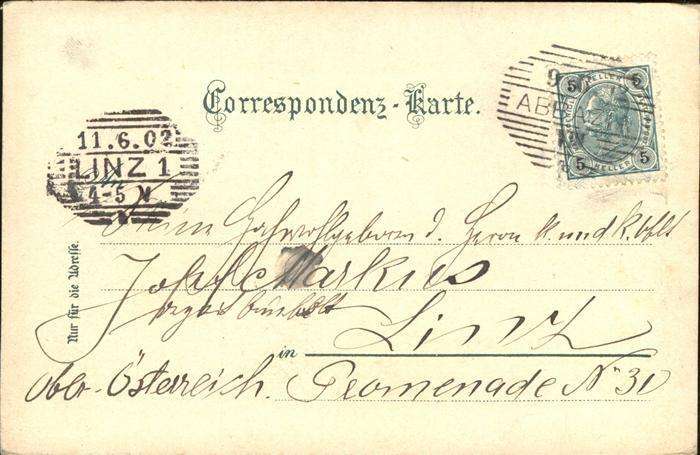 Correspondenz-Karte.
5 HELLER 5
9
ABBAZIA
5 HELLER 5
11.6.02
LINZ 1
4-5 N
Hochwohlgeboren d. Herrn k. und k.
Nur für die Adresse.
Josef Markus
Linz
in
Ober-Österreich. Promenade No 31